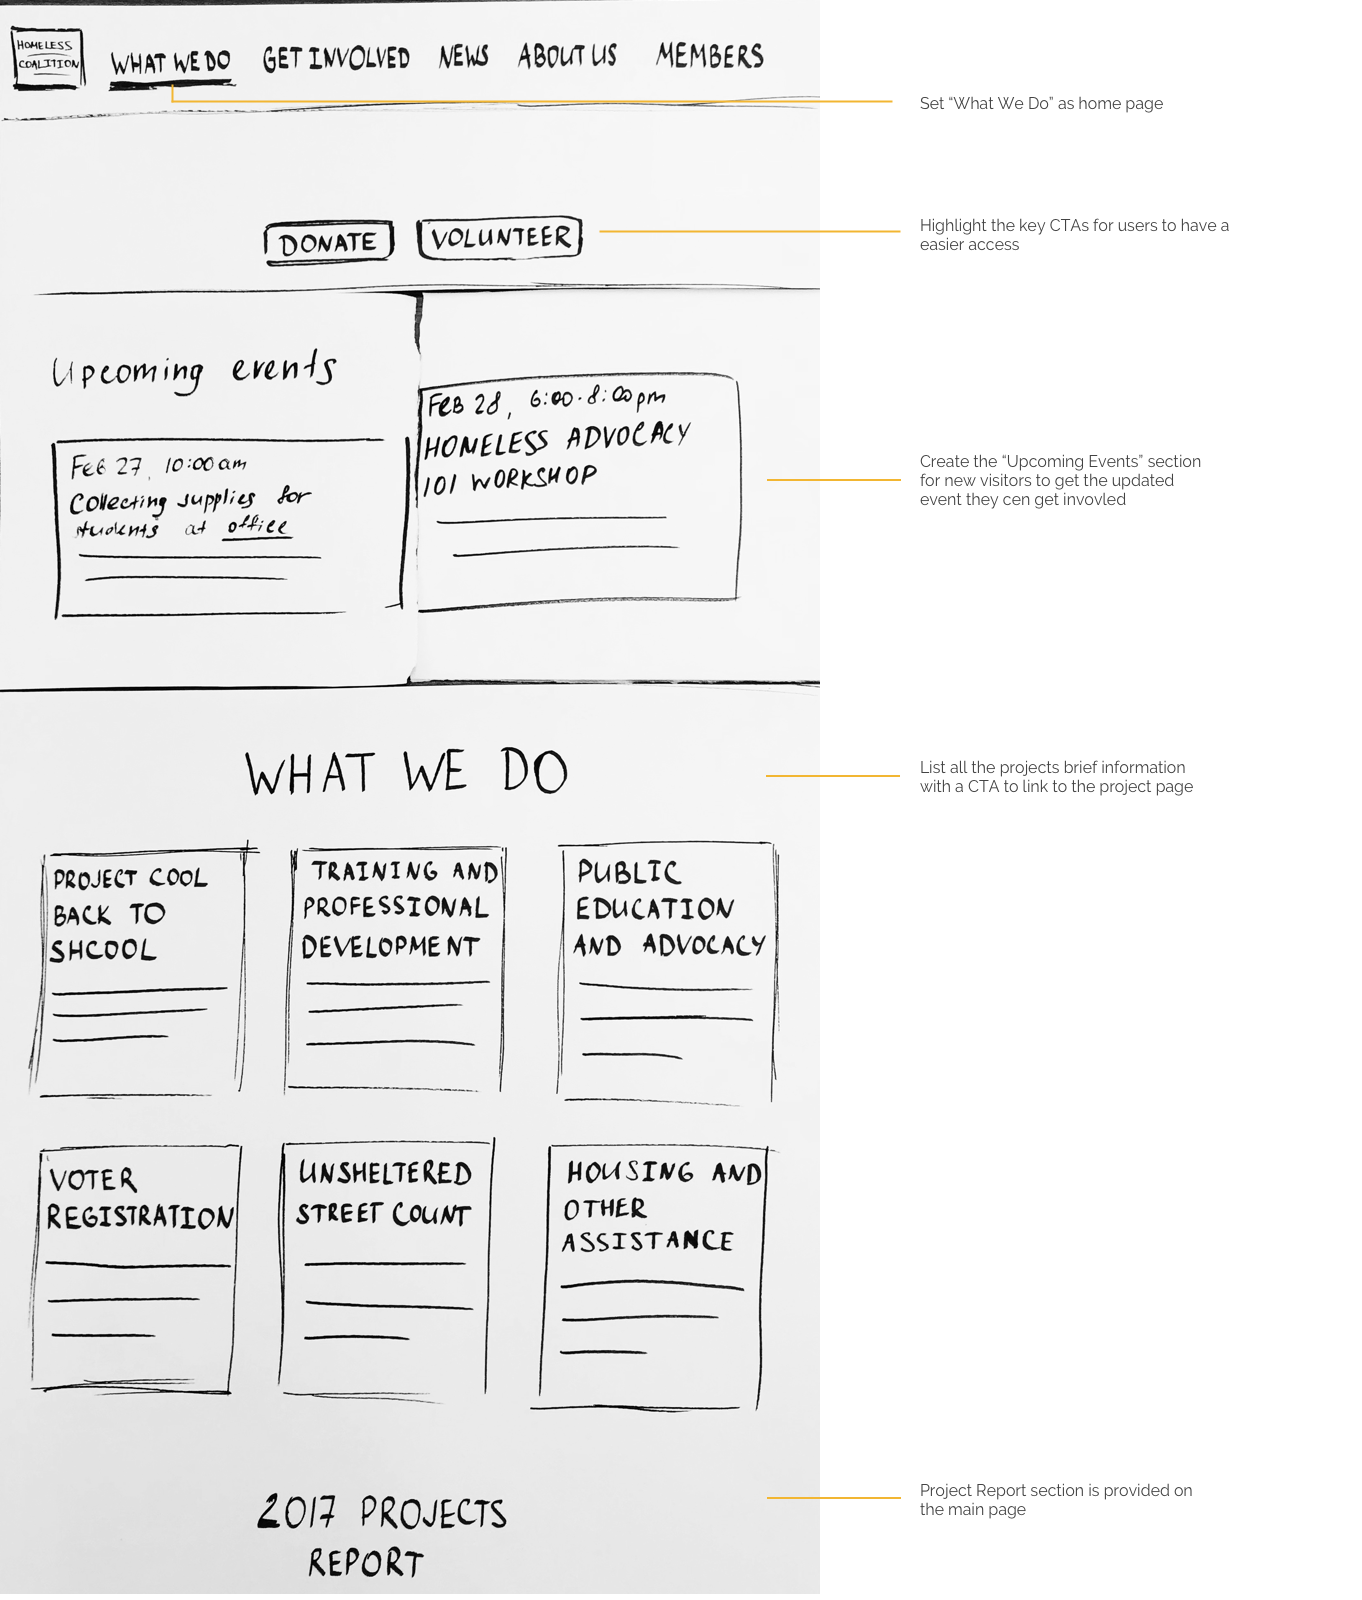 HOMELESS
COALITION
WHAT WE DO GET INVOLVED NEWS ABOUT US MEMBERS
Set “What We Do” as home page
DONATE VOLUNTEER
Highlight the key CTAs for users to have a
easier access
Upcoming events
Feb 27, 10:00 am
Collecting supplies for
students at office
FEB 28, 6:00-8:00 pm
HOMELESS ADVOCACY
101 WORKSHOP
Create the “Upcoming Events” section
for new visitors to get the updated
event they cen get invovled
WHAT WE DO
List all the projects brief information
with a CTA to link to the project page
PROJECT COOL
BACK TO
SHCOOL
TRAINING AND
PROFESSIONAL
DEVELOPMENT
PUBLIC
EDUCATION
AND ADVOCACY
VOTER
REGISTRATION
UNSHELTERED
STREET COUNT
HOUSING AND
OTHER
ASSISTANCE
2017 PROJECTS
REPORT
Project Report section is provided on
the main page